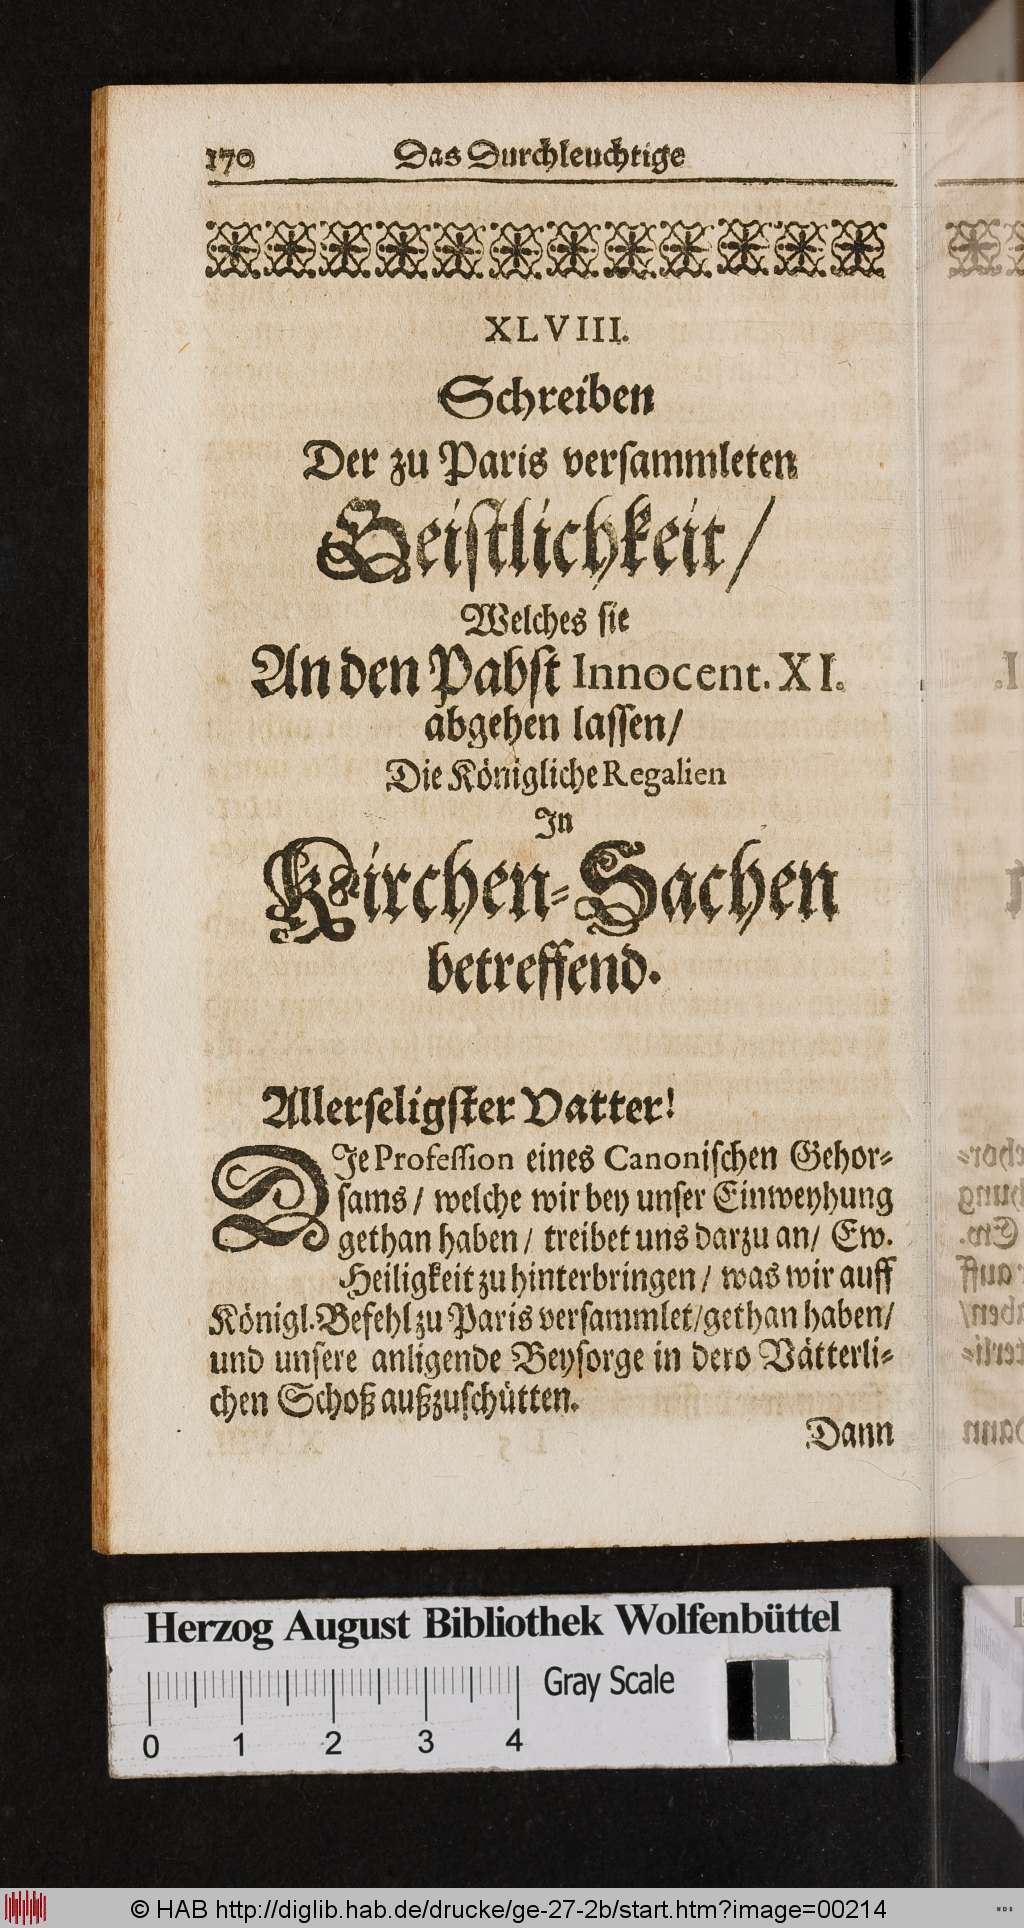 170 Das Durchleuchtige
XLVIII.
Schreiben
Der zu Paris versammleten
Geistlichkeit/
Welches sie
An den Pabst Innocent. XI.
abgehen lassen/
Die Königliche Regalien
In
Kirchen-Sachen
betreffend.
Allerseligster Vatter!
DIe Profession eines Canonischen Gehor-
sams / welche wir bey unser Einweyhung
gethan haben / treibet uns darzu an / Ew.
Heiligkeit zu hinterbringen / was wir auff
Königl. Befehl zu Paris versammlet/gethan haben/
und unsere anligende Beysorge in dero Vätterli-
chen Schoß außzuschütten.
Dann
Herzog August Bibliothek Wolfenbüttel
Gray Scale
0 1 2 3 4
© HAB http://diglib.hab.de/drucke/ge-27-2b/start.htm?image=00214